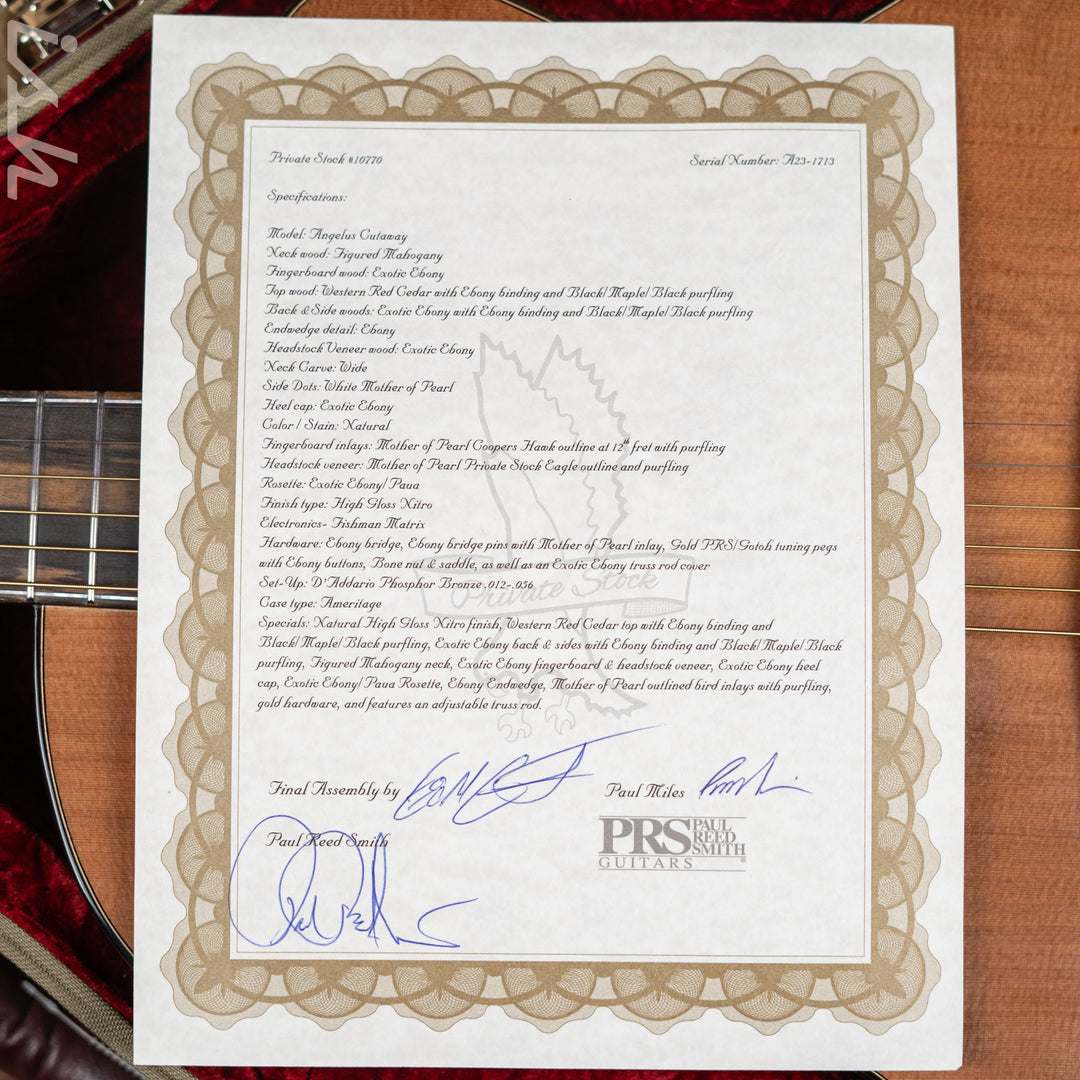 ish
Private Stock #10770
Serial Number: A23-1713
Specifications:
Model: Angelus Cutaway
Neck wood: Figured Mahogany
Fingerboard wood: Exotic Ebony
Top wood: Western Red Cedar with Ebony binding and Black/Maple/Black purfling
Back & Side woods: Exotic Ebony with Ebony binding and Black/Maple/Black purfling
Endwedge detail: Ebony
Headstock Veneer wood: Exotic Ebony
Neck Carve: Wide
Side Dots: White Mother of Pearl
Heel cap: Exotic Ebony
Color / Stain: Natural
Fingerboard inlays: Mother of Pearl Coopers Hawk outline at 12th fret with purfling
Headstock veneer: Mother of Pearl Private Stock Eagle outline and purfling
Rosette: Exotic Ebony/ Paua
Finish type: High Gloss Nitro
Electronics- Fishman Matrix
Hardware: Ebony bridge, Ebony bridge pins with Mother of Pearl inlay, Gold PRS/Gotoh tuning pegs
with Ebony buttons, Bone nut & saddle, as well as an Exotic Ebony truss rod cover
Set-Up: D'Addario Phosphor Bronze .012-.056
Private Stock
Case type: Ameritage
Specials: Natural High Gloss Nitro finish, Western Red Cedar top with Ebony binding and
Black/Maple/Black purfling, Exotic Ebony back & sides with Ebony binding and Black/Maple/Black
purfling, Figured Mahogany neck, Exotic Ebony fingerboard & headstock veneer, Exotic Ebony heel
cap, Exotic Ebony/Paua Rosette, Ebony Endwedge, Mother of Pearl outlined bird inlays with purfling,
gold hardware, and features an adjustable truss rod.
Final Assembly by
Paul Miles
Paul Reed Smith
PRS PAUL
REED
SMITH
GUITARS